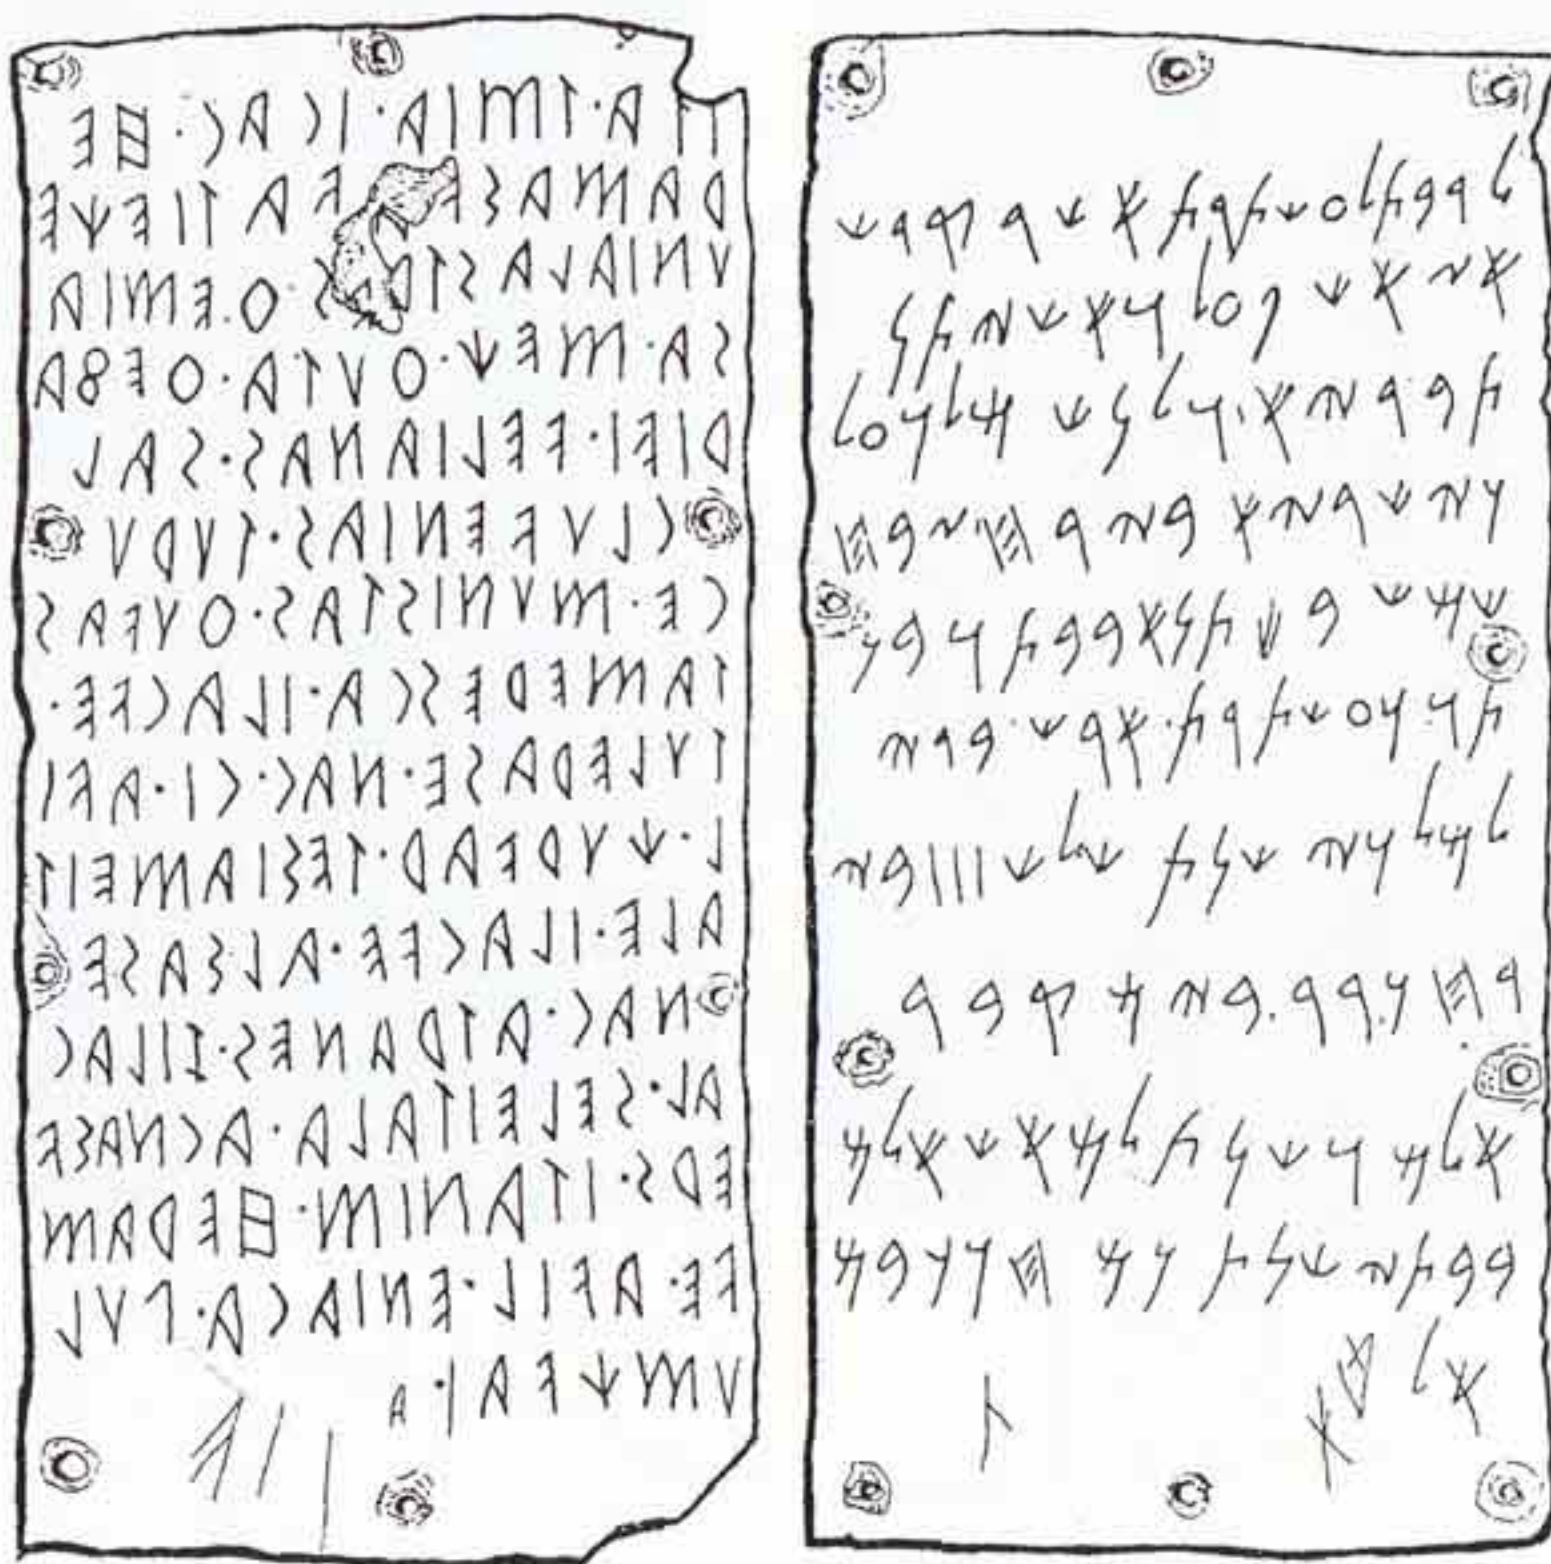 𐌉𐌕𐌀·𐌕𐌌𐌉𐌀·𐌉𐌂𐌀𐌂·𐌇𐌄
𐌓𐌀𐌌𐌀𐌔𐌅𐌀 𐌅𐌀𐌕𐌉𐌄𐌙𐌄
𐌖𐌍𐌉𐌀𐌋𐌀𐌔𐌕𐌓𐌄𐌔·𐌈𐌄𐌌𐌉𐌀
𐌔𐌀·𐌌𐌄𐌙·𐌈𐌖𐌕𐌀·𐌈𐌄𐌚𐌀
𐌓𐌉𐌄𐌉·𐌅𐌄𐌋𐌉𐌀𐌍𐌀𐌔·𐌔𐌀𐌋
𐌂𐌋𐌖𐌅𐌄𐌍𐌉𐌀𐌔·𐌕𐌖𐌓𐌖
𐌂𐌄·𐌌𐌖𐌍𐌉𐌔𐌕𐌀𐌔·𐌈𐌖𐌅𐌀𐌔
𐌕𐌀𐌌𐌄𐌓𐌄𐌔𐌂𐌀·𐌉𐌋𐌀𐌂𐌅𐌄·
𐌕𐌖𐌋𐌄𐌓𐌀𐌔𐌄·𐌍𐌀𐌂·𐌂𐌉·𐌀𐌅𐌉
𐌋·𐌙𐌖𐌓𐌅𐌀𐌓·𐌕𐌄𐌔𐌉𐌀𐌌𐌄𐌉𐌕
𐌀𐌋𐌄·𐌉𐌋𐌀𐌂𐌅𐌄·𐌀𐌋𐌔𐌀𐌔𐌄
𐌍𐌀𐌂·𐌀𐌕𐌓𐌀𐌍𐌄𐌔·𐌆𐌉𐌋𐌀𐌂
𐌀𐌋·𐌔𐌄𐌋𐌄𐌉𐌕𐌀𐌋𐌀·𐌀𐌂𐌍𐌀𐌔𐌅
𐌄𐌓𐌔·𐌉𐌕𐌀𐌍𐌉𐌌·𐌇𐌄𐌓𐌀𐌌
𐌅𐌄·𐌀𐌅𐌉𐌋·𐌄𐌍𐌉𐌀𐌂𐌀·𐌐𐌖𐌋
𐌖𐌌𐌙𐌅𐌀
𐤋𐤓𐤁𐤕 𐤋𐤏𐤔𐤕𐤓𐤕 𐤀𐤔𐤓 𐤒𐤃𐤔
𐤀𐤆 𐤀𐤔 𐤐𐤏𐤋 𐤅𐤀𐤔 𐤉𐤕𐤍
𐤕𐤁𐤓𐤉𐤀·𐤅𐤋𐤍𐤔 𐤌𐤋𐤊 𐤏𐤋
𐤊𐤉𐤔𐤓𐤉𐤀 𐤁𐤉𐤓𐤇 𐤆𐤁𐤇
𐤔𐤌𐤔 𐤁𐤌𐤕𐤍𐤀 𐤁𐤁𐤕 𐤅𐤁𐤍
𐤕𐤅·𐤊𐤏𐤔𐤕𐤓𐤕·𐤀𐤓𐤔·𐤁𐤃𐤉
𐤋𐤌𐤋𐤊𐤉 𐤔𐤍𐤕 𐤔𐤋𐤔 𐤖𐤖𐤖 𐤁𐤉
𐤓𐤇 𐤊𐤓𐤓·𐤁𐤉𐤌 𐤒𐤁𐤓
𐤀𐤋𐤌 𐤅𐤔𐤍𐤕 𐤋𐤌𐤀𐤔 𐤀𐤋𐤌
𐤁𐤁𐤕𐤉 𐤔𐤍𐤕 𐤊𐤌 𐤄𐤊𐤊𐤁𐤌
𐤀𐤋